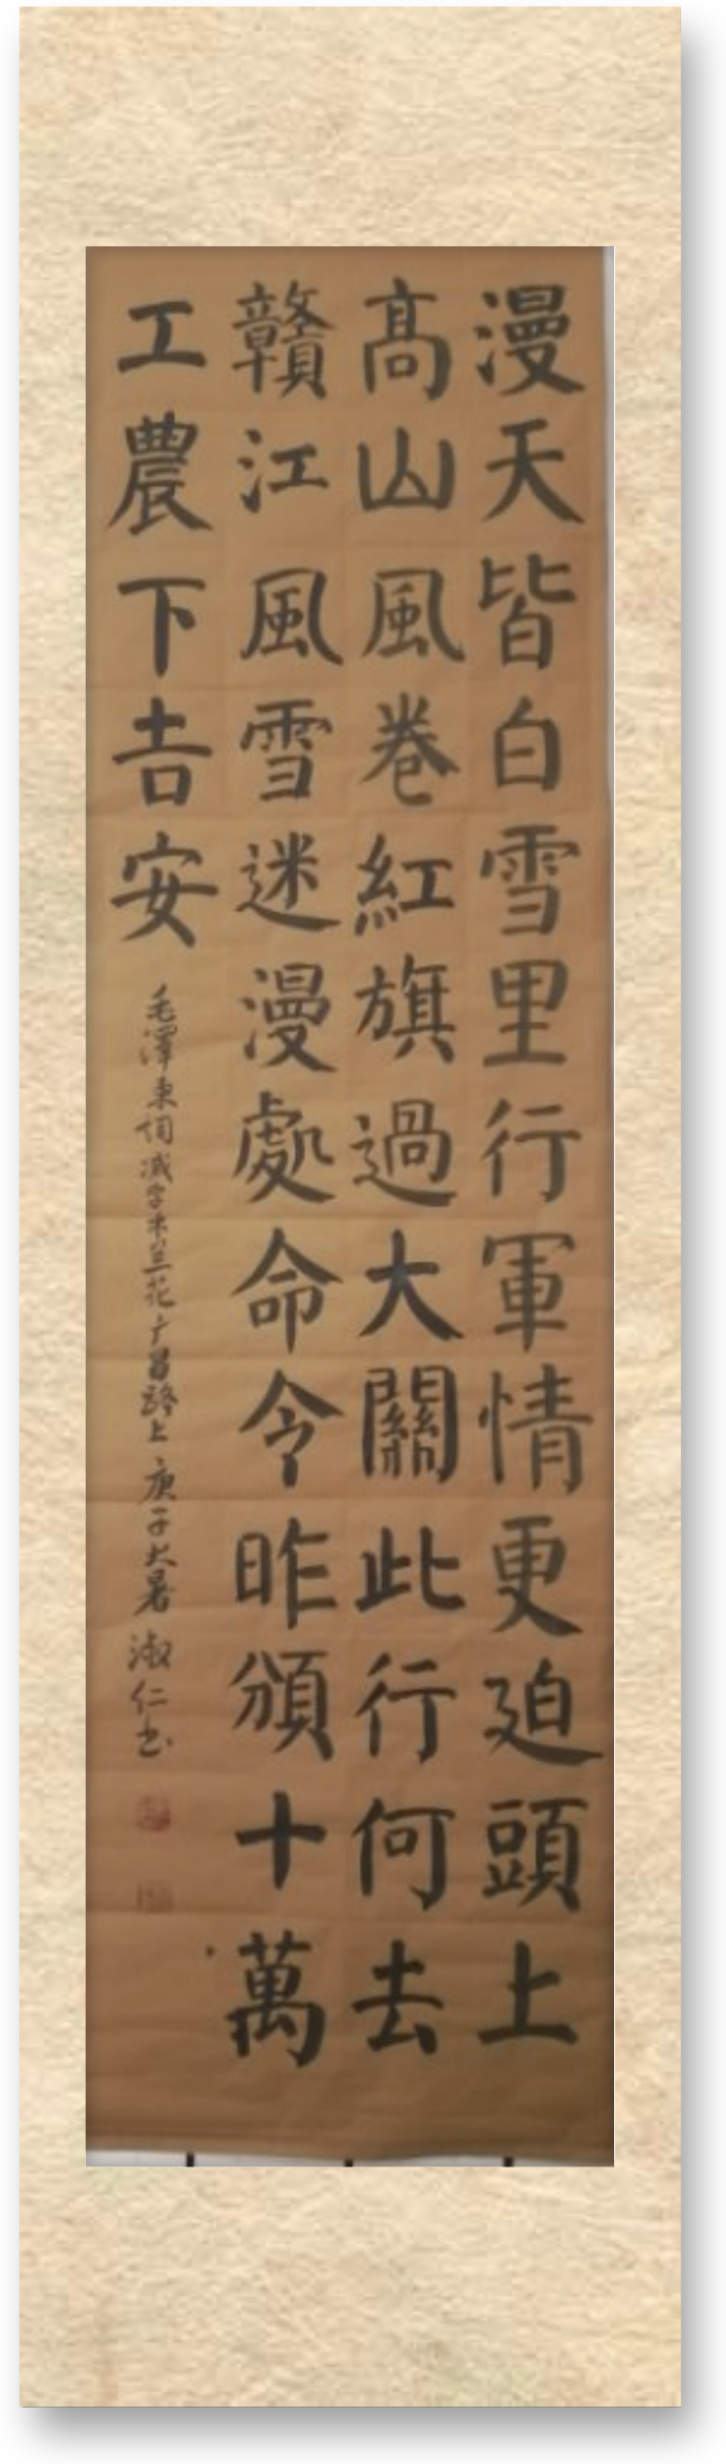 漫天皆白雪里行軍情更迫頭上
高山風卷紅旗過大關此行何去
贛江風雪迷漫處命令昨頒十萬
工農下吉安
毛澤東詞減字木兰花广昌路上 庚子大暑 淑仁书